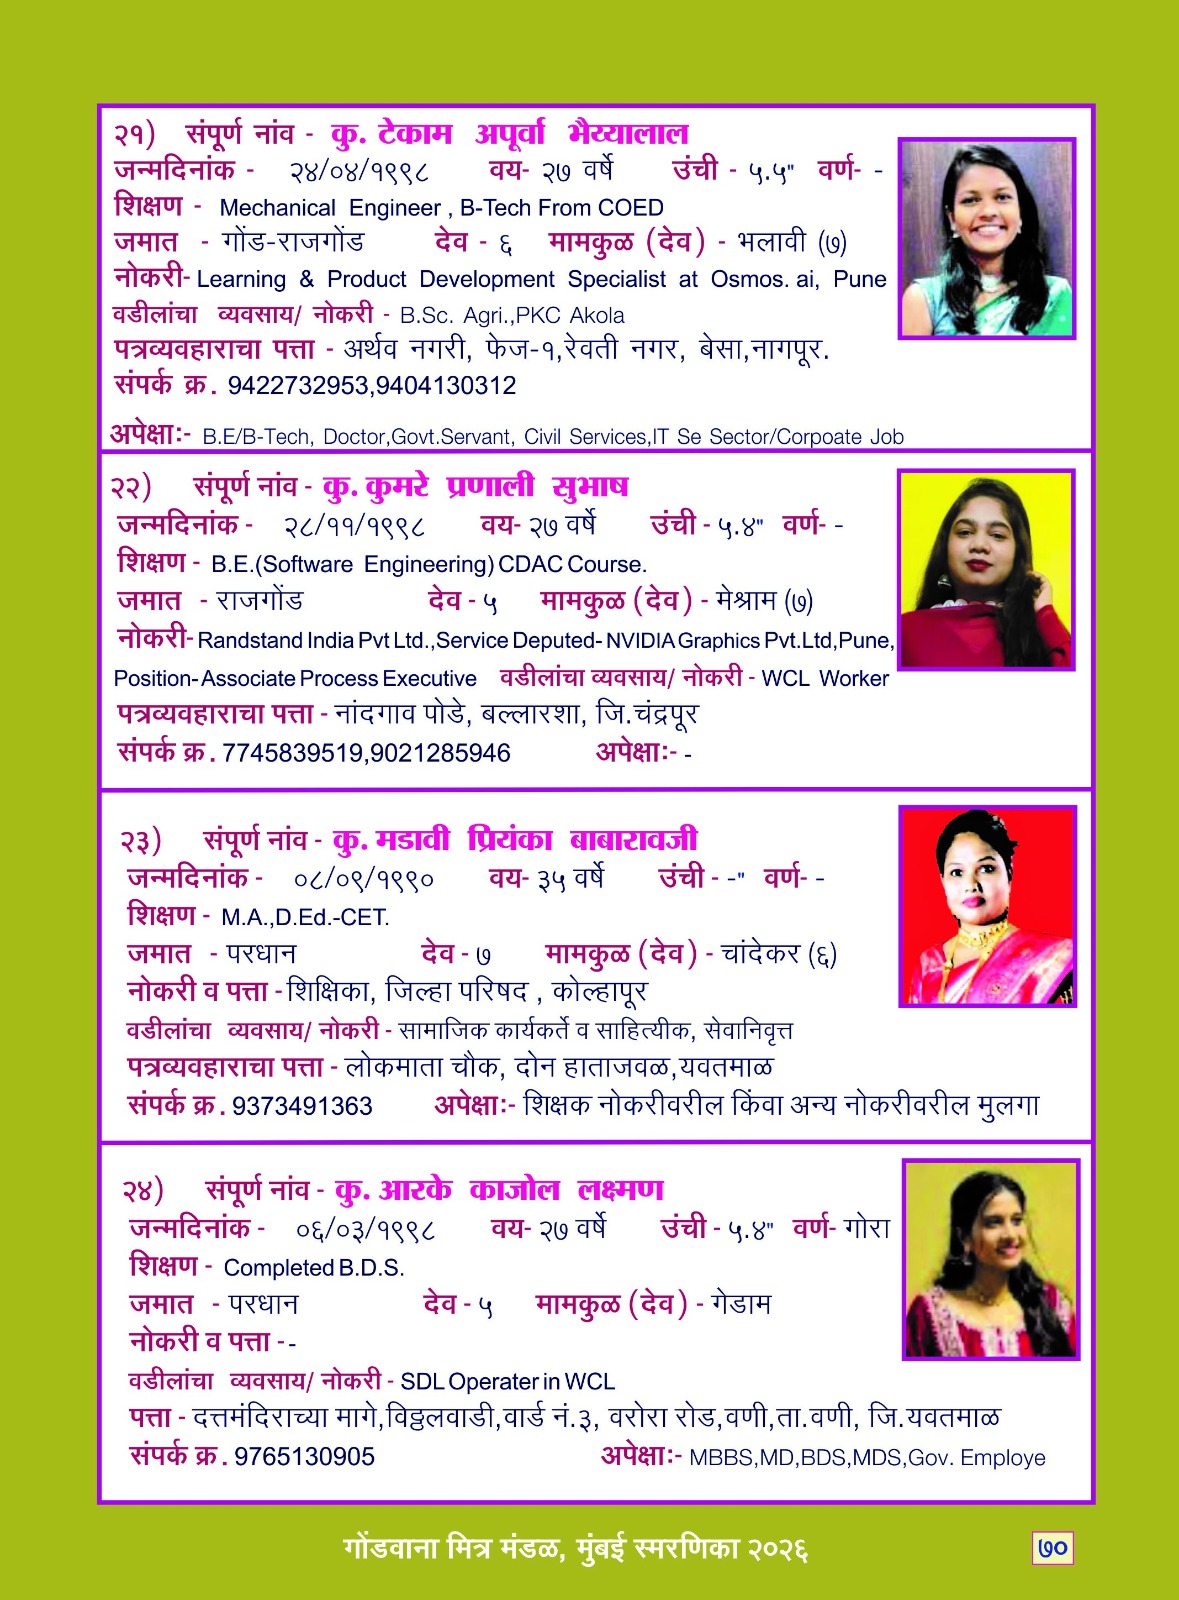 २१) संपूर्ण नांव - कु. टेकाम अपूर्वा भैय्यालाल
जन्मदिनांक - २४/०४/१९९८ वय- २७ वर्षे उंची - ५.५" वर्ण- -
शिक्षण - Mechanical Engineer , B-Tech From COED
जमात - गोंड-राजगोंड देव - ६ मामकुळ (देव) - भलावी (७)
नोकरी- Learning & Product Development Specialist at Osmos. ai, Pune
वडीलांचा व्यवसाय/ नोकरी - B.Sc. Agri.,PKC Akola
पत्रव्यवहाराचा पत्ता - अर्थव नगरी, फेज-१,रेवती नगर, बेसा,नागपूर.
संपर्क क्र. 9422732953,9404130312
अपेक्षाः- B.E/B-Tech, Doctor,Govt.Servant, Civil Services,IT Se Sector/Corpoate Job
२२) संपूर्ण नांव - कु. कुमरे प्रणाली सुभाष
जन्मदिनांक - २८/११/१९९८ वय- २७ वर्षे उंची - ५.४" वर्ण- -
शिक्षण - B.E.(Software Engineering) CDAC Course.
जमात - राजगोंड देव - ५ मामकुळ (देव) - मेश्राम (७)
नोकरी- Randstand India Pvt Ltd.,Service Deputed- NVIDIA Graphics Pvt.Ltd,Pune,
Position- Associate Process Executive वडीलांचा व्यवसाय/ नोकरी - WCL Worker
पत्रव्यवहाराचा पत्ता - नांदगाव पोडे, बल्लारशा, जि.चंद्रपूर
संपर्क क्र. 7745839519,9021285946 अपेक्षाः- -
२३) संपूर्ण नांव - कु. मडावी प्रियंका बाबारावजी
जन्मदिनांक - ०८/०९/१९९० वय- ३५ वर्षे उंची - -" वर्ण- -
शिक्षण - M.A.,D.Ed.-CET.
जमात - परधान देव - ७ मामकुळ (देव) - चांदेकर (६)
नोकरी व पत्ता - शिक्षिका, जिल्हा परिषद , कोल्हापूर
वडीलांचा व्यवसाय/ नोकरी - सामाजिक कार्यकर्ते व साहित्यीक, सेवानिवृत्त
पत्रव्यवहाराचा पत्ता - लोकमाता चौक, दोन हाताजवळ,यवतमाळ
संपर्क क्र. 9373491363 अपेक्षाः- शिक्षक नोकरीवरील किंवा अन्य नोकरीवरील मुलगा
२४) संपूर्ण नांव - कु. आरके काजोल लक्ष्मण
जन्मदिनांक - ०६/०३/१९९८ वय- २७ वर्षे उंची - ५.४" वर्ण- गोरा
शिक्षण - Completed B.D.S.
जमात - परधान देव - ५ मामकुळ (देव) - गेडाम
नोकरी व पत्ता - -
वडीलांचा व्यवसाय/ नोकरी - SDL Operater in WCL
पत्ता - दत्तमंदिराच्या मागे,विठ्ठलवाडी,वार्ड नं.३, वरोरा रोड,वणी,ता.वणी, जि.यवतमाळ
संपर्क क्र. 9765130905 अपेक्षाः- MBBS,MD,BDS,MDS,Gov. Employe
गोंडवाना मित्र मंडळ, मुंबई स्मरणिका २०२६ ७०